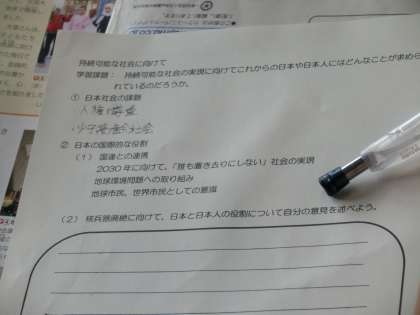 持続可能な社会に向けて
学習課題： 持続可能な社会の実現に向けてこれからの日本や日本人にはどんなことが求めら
れているのだろうか。
① 日本社会の課題
人権
少子高齢社会
② 日本の国際的な役割
（１） 国連との連携
２０３０年に向けて、「誰も置き去りにしない」社会の実現
地球環境問題への取り組み
地球市民、世界市民としての意識
（２） 核兵器廃絶に向けて、日本と日本人の役割について自分の意見を述べよう。